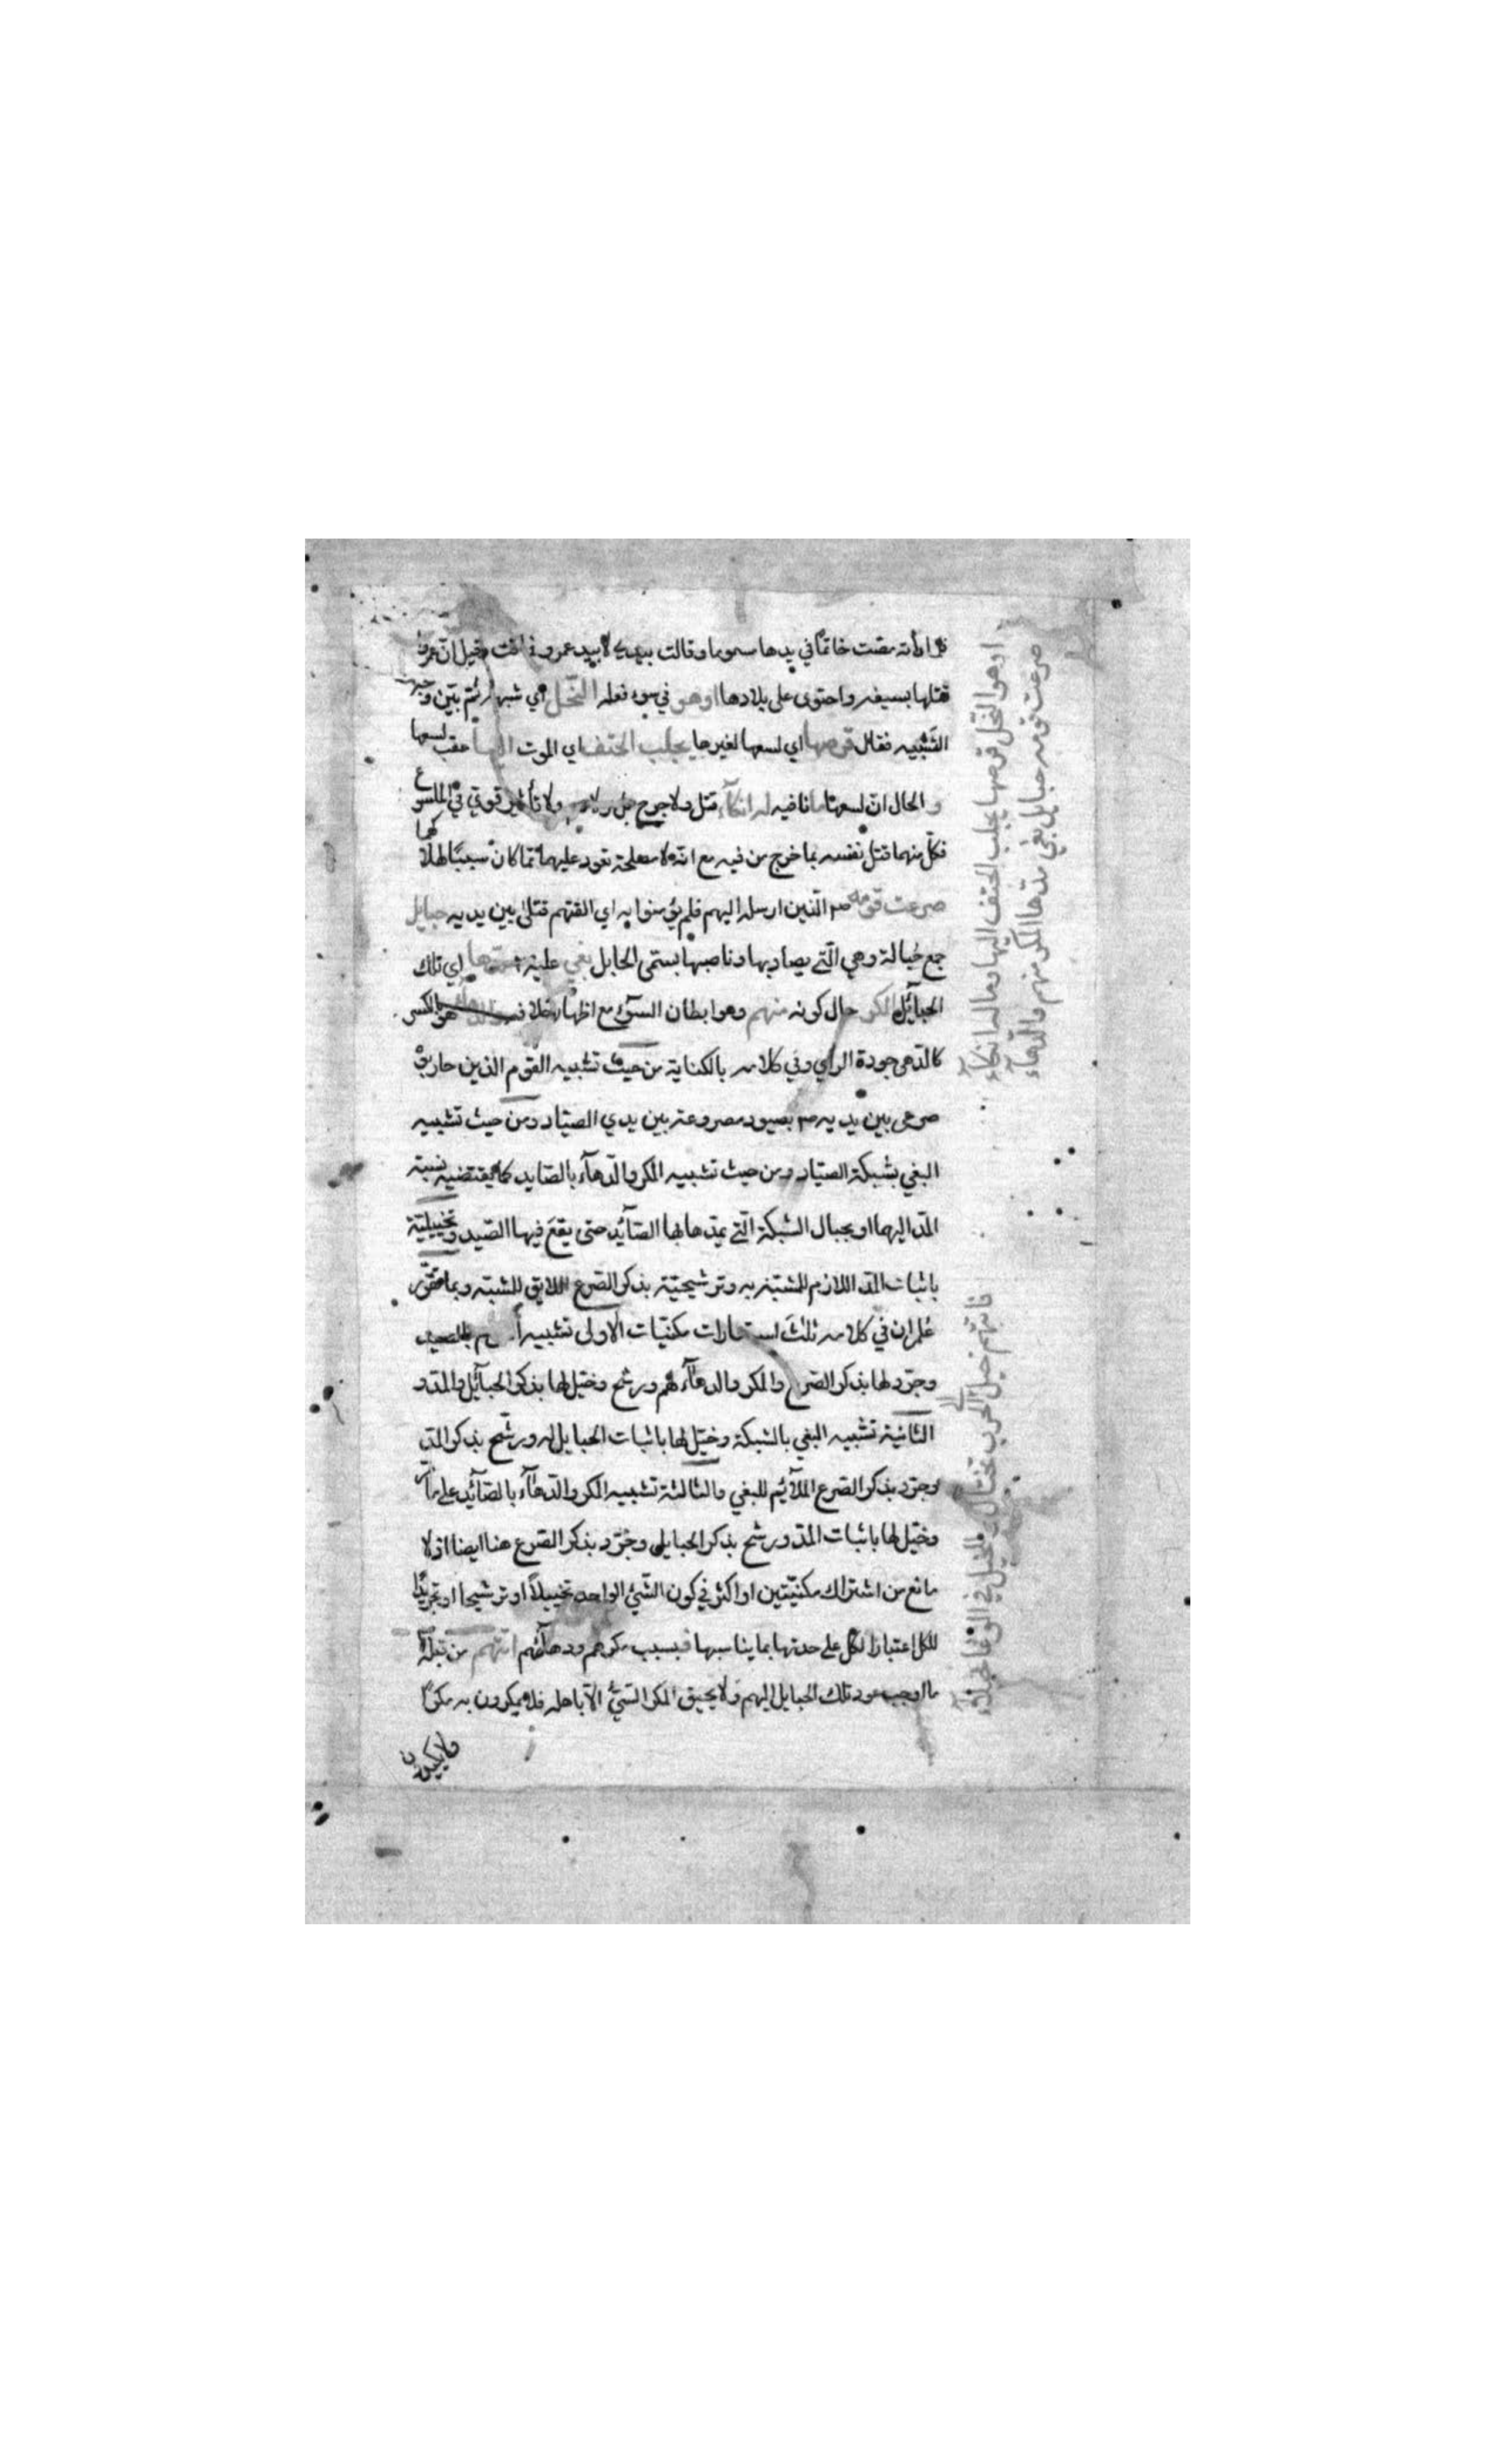 فلما رأته مصت خاتما في يدها مسموما وقالت بيدي لا بيد عمرو فماتت وقيل ان عمروا
قتلها بسيفه واحتوى على بلادها اوهو في سوء فعله النحل اي شبهها ثم بين وجه
التشبيه فقال قرصها اي لسعها لغيرها يجلب الحتف اي الموت اليها عقب لسعها
و الحال ان لسعها ما نافيه له انكاء قتل ولا جرح ولا تأثير قوي في الملسوع
فكل منهما قتل نفسه بما خرج من فيه مع انه لا مصلحة تعود عليهما مما كان سببا لهلاكهما
صرعت قومه الذين ارسل اليهم فلم يؤمنوا به اي القتهم قتلى بين يديه حبايل
جمع حبالة وهي التي يصاد بها وناصبها يسمى الحابل بغي عليه مدها اي تلك
الحبائل المكر حال كونه منهم وهو ابطان السوء مع اظهار خلافه هو بالكسر
كالدهى جودة الراي وفي كلامه بالكناية من حيث تشبيه القوم الذين حاربوه
صرعى بين يديه بصيود مصروعة بين يدي الصياد ومن حيث تشبيه
البغي بشبكة الصياد ومن حيث تشبيه المكر والدهاء بالصايد كما يقتضيه نسبة
المد اليهما او بحبال الشبكة التي يمدها لها الصائد حتى يقع فيها الصيد وتخييلية
باثبات المد اللازم للمشبه به وترشيحية بذكر الصرع اللايق للمشبه وبما تقرر
علم ان في كلامه ثلث استعارات مكنيات الاولى تشبيه بالصيد
وجرد لها بذكر الصرع والمكر والدهاء لهم ورشح وخيل لها بذكر الحبائل والمد و
الثانية تشبيه البغي بالشبكة وخيل لها باثبات الحبايل له ورشح بذكر المد
وجرد بذكر الصرع الملائم للبغي والثالثة تشبيه المكر والدهاء بالصائد على ما مر
وخيل لها باثبات المد ورشح بذكر الحبايل وجرد بذكر الصرع هنا ايضا اذ لا
مانع من اشتراك مكنيتين او اكثر في كون الشيء الواحد تخييلا او ترشيحا او تجريدا
للكل اعتبارا لكل على حدتها بما يناسبها فبسبب مكرهم ودهائهم اتتهم من قبله
ما اوجب عود تلك الحبايل اليهم ولا يحيق المكر السيئ الا باهله فلا يمكرون به مكرا
ولا يكيدون
اوهو النحل قرصها يجلب الحتف اليها وماله انكاء
صرعت قومه حبايل بغي مدها المكر منهم والدهاء
فاتتهم خيل الى الحرب تختال وللخيل في الوغا خيلاء